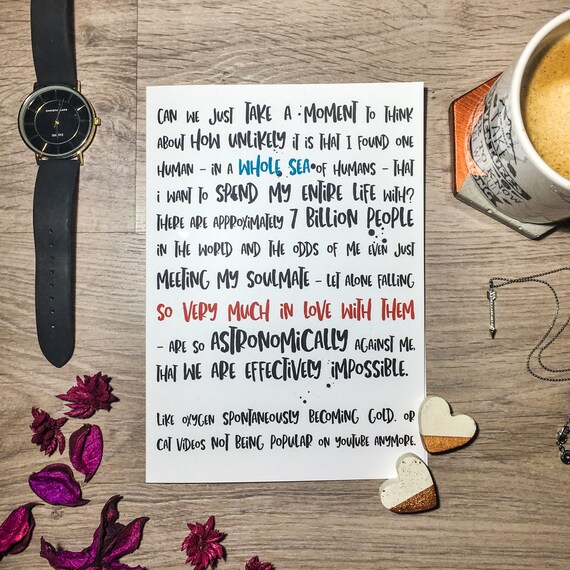 CAN WE JUST TAKE A MOMENT TO THINK
ABOUT HOW UNLIKELY IT IS THAT I FOUND ONE
HUMAN - IN A WHOLE SEA OF HUMANS - THAT
I WANT TO SPEND MY ENTIRE LIFE WITH?
THERE ARE APPROXIMATELY 7 BILLION PEOPLE
IN THE WORLD AND THE ODDS OF ME EVEN JUST
MEETING MY SOULMATE - LET ALONE FALLING
SO VERY MUCH IN LOVE WITH THEM
- ARE SO ASTRONOMICALLY AGAINST ME,
THAT WE ARE EFFECTIVELY IMPOSSIBLE.
LIKE OXYGEN SPONTANEOUSLY BECOMING GOLD. OR
CAT VIDEOS NOT BEING POPULAR ON YOUTUBE ANYMORE.